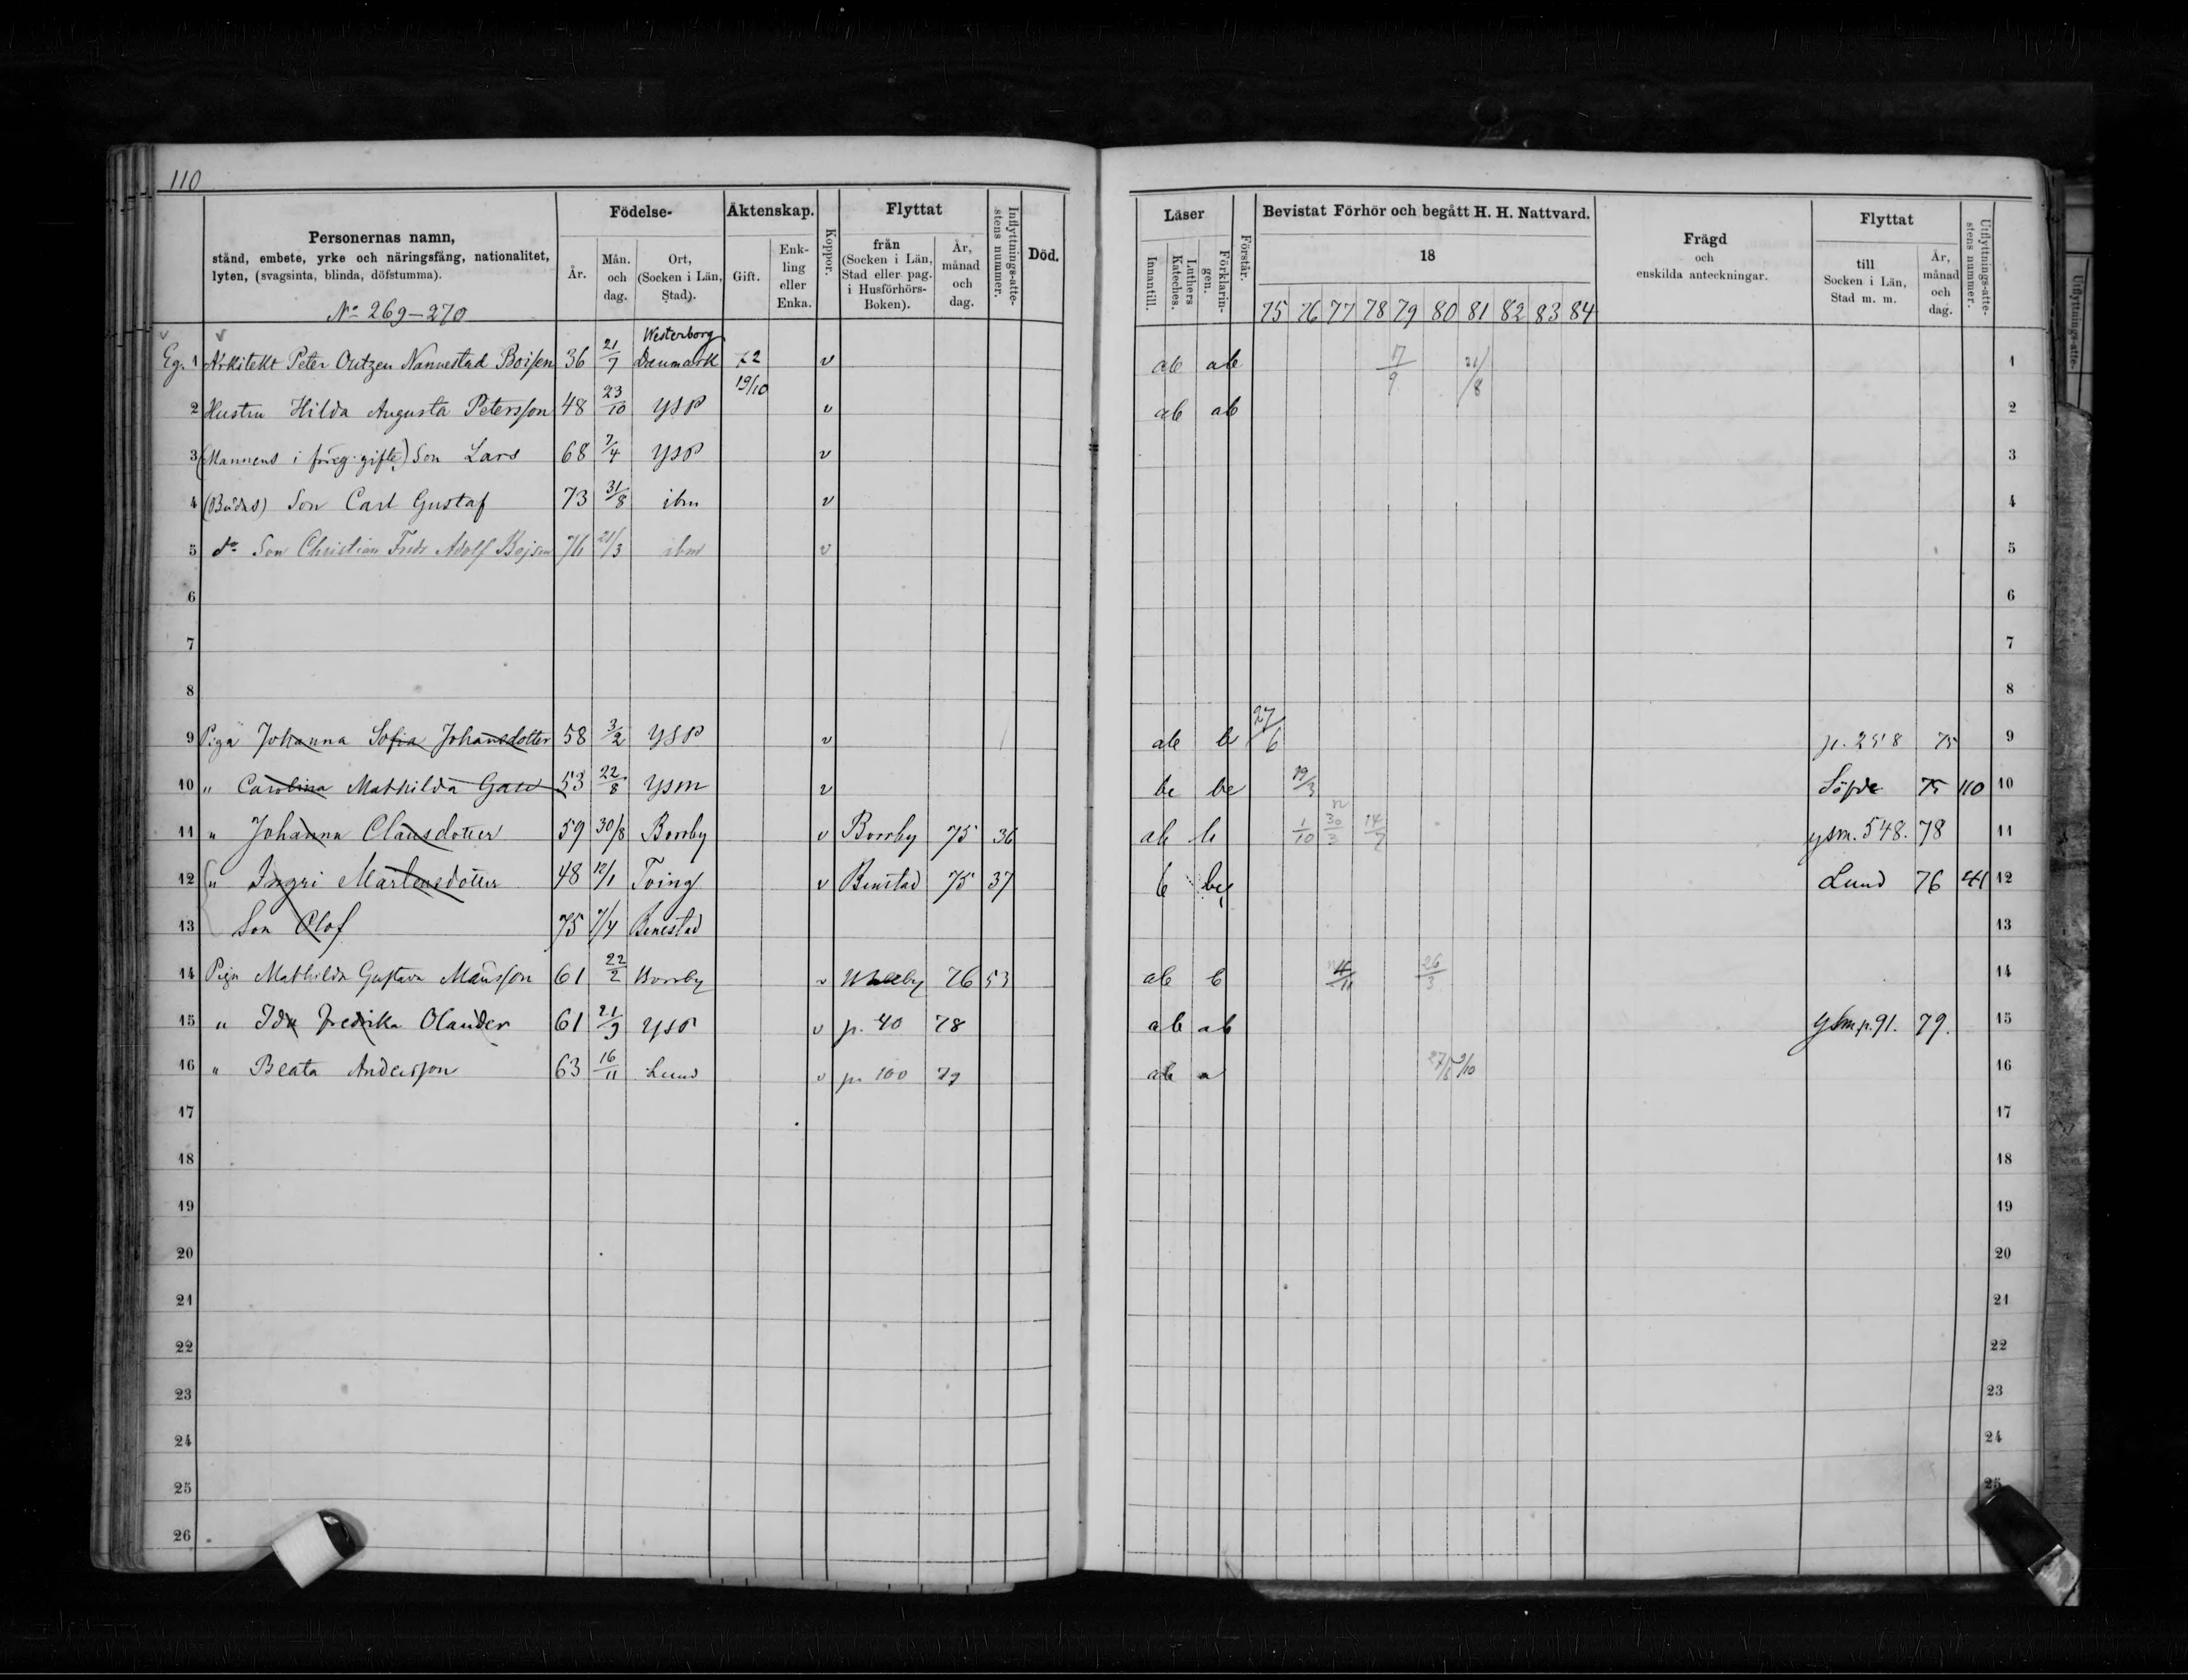 110
Personernas namn,
stånd, embete, yrke och näringsfång, nationalitet,
lyten, (svagsinta, blinda, döfstumma).
Nº 269-270
Födelse-
År.
Mån. och dag.
Ort, (Socken i Län, Stad).
Äktenskap.
Gift.
Enk-ling eller Enka.
Koppor.
Flyttat
från (Socken i Län, Stad eller pag. i Husförhörs-Boken).
År, månad och dag.
Inflyttnings-atte-stens nummer.
Död.
Läser
Innantill.
Luthers Kateches.
Förklarin-gen.
Förstår.
Bevistat Förhör och begått H. H. Nattvard.
18
75 76 77 78 79 80 81 82 83 84
Frägd
och
enskilda anteckningar.
Flyttat
till Socken i Län, Stad m. m.
År, månad och dag.
Utflyttnings-atte-stens nummer.
Eg. 1 Arkitekt Peter Outzen Nannestad Boisen 36 21/7 Westerborg Danmark 72 19/10 v ab ab 7/9 21/8 1
2 Hustru Hilda Augusta Petersson 48 23/10 YSP v ab ab 2
3 (Mannens i föreg. gifte) Son Lars 68 7/4 YSP v 3
4 (Bådas) Son Carl Gustaf 73 31/8 ibm v 4
5 do Son Christian Fredr Adolf Bojsen 76 21/3 ibm v 5
6 6
7 7
8 8
9 Piga Johanna Sofia Johansdotter 58 3/2 YSP v ab b 27/6 p. 258 75 9
10 " Carolina Mathilda Gad 53 22/8 YSM v bc bc 19/3 Söfde 75 110 10
11 " Johanna Clausdotter 59 30/8 Borrby v Borrby 75 36 ab b 1/10 30/3 14/7 ysm. 548. 78 11
12 " Ingri Mårtensdotter 48 12/1 Tving v Benstad 75 37 b bc Lund 76 41 12
13 Son Olof 75 7/4 Benestad 13
14 Piga Mathilda Gustava Månsson 61 22/2 Borrby v 76 53 ab b 4/11 26/3 14
15 " Ida Fredrika Olander 61 21/9 YSP v p. 40 78 ab ab Ysm p. 91. 79. 15
16 " Beata Andersson 63 16/11 Lund v p. 100 79 ab a 27/6 9/10 16
17 17
18 18
19 19
20 20
21 21
22 22
23 23
24 24
25 25
26